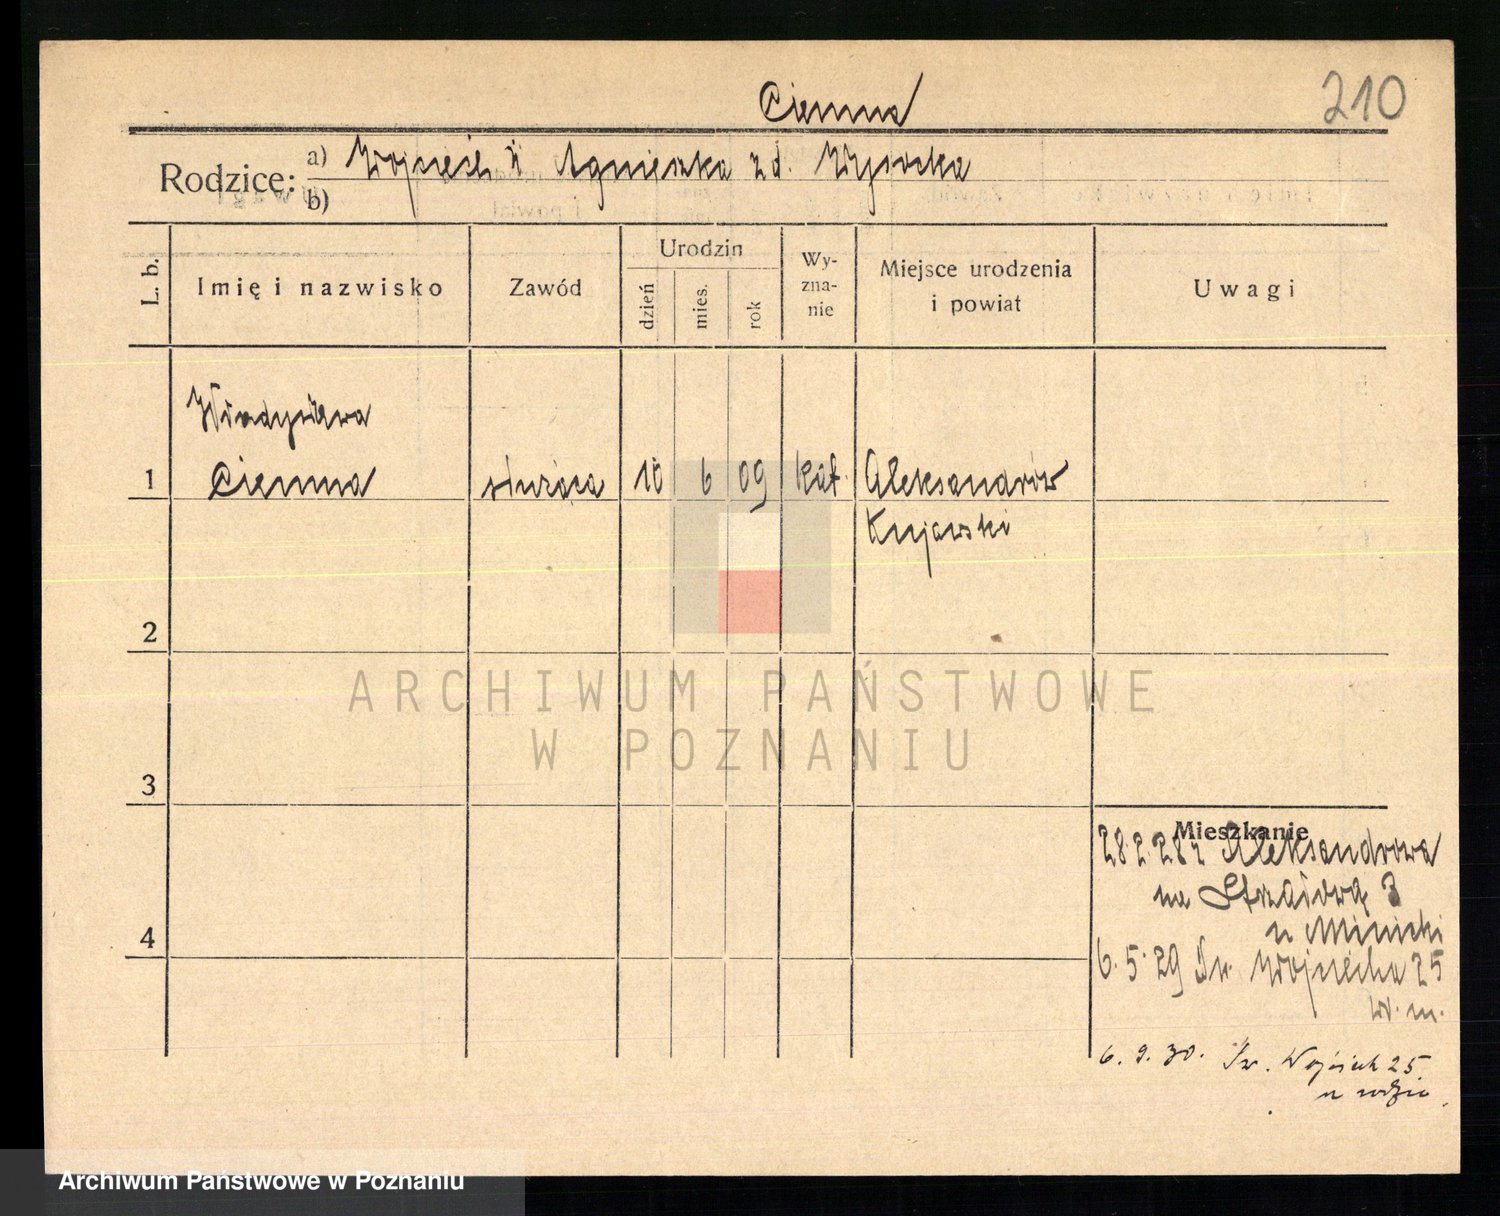 210
Ciemna
Rodzice: a) Wojciech i Agnieszka z d. Wysocka
b)
L. b.
Imię i nazwisko
Zawód
Urodzin
dzień
mies.
rok
Wy-
zna-
nie
Miejsce urodzenia
i powiat
Uwagi
Władysława
1 Ciemna służąca 10 6 09 kat. Aleksandrów
Kujawski
2
ARCHIWUM PAŃSTWOWE
W POZNANIU
3
Mieszkanie
28.2.28 z Aleksandrowa
na 3
u
4
6.5.29 Św. Wojciecha 25
w. m.
6. 9. 30. Św. Wojciech 25
u
Archiwum Państwowe w Poznaniu